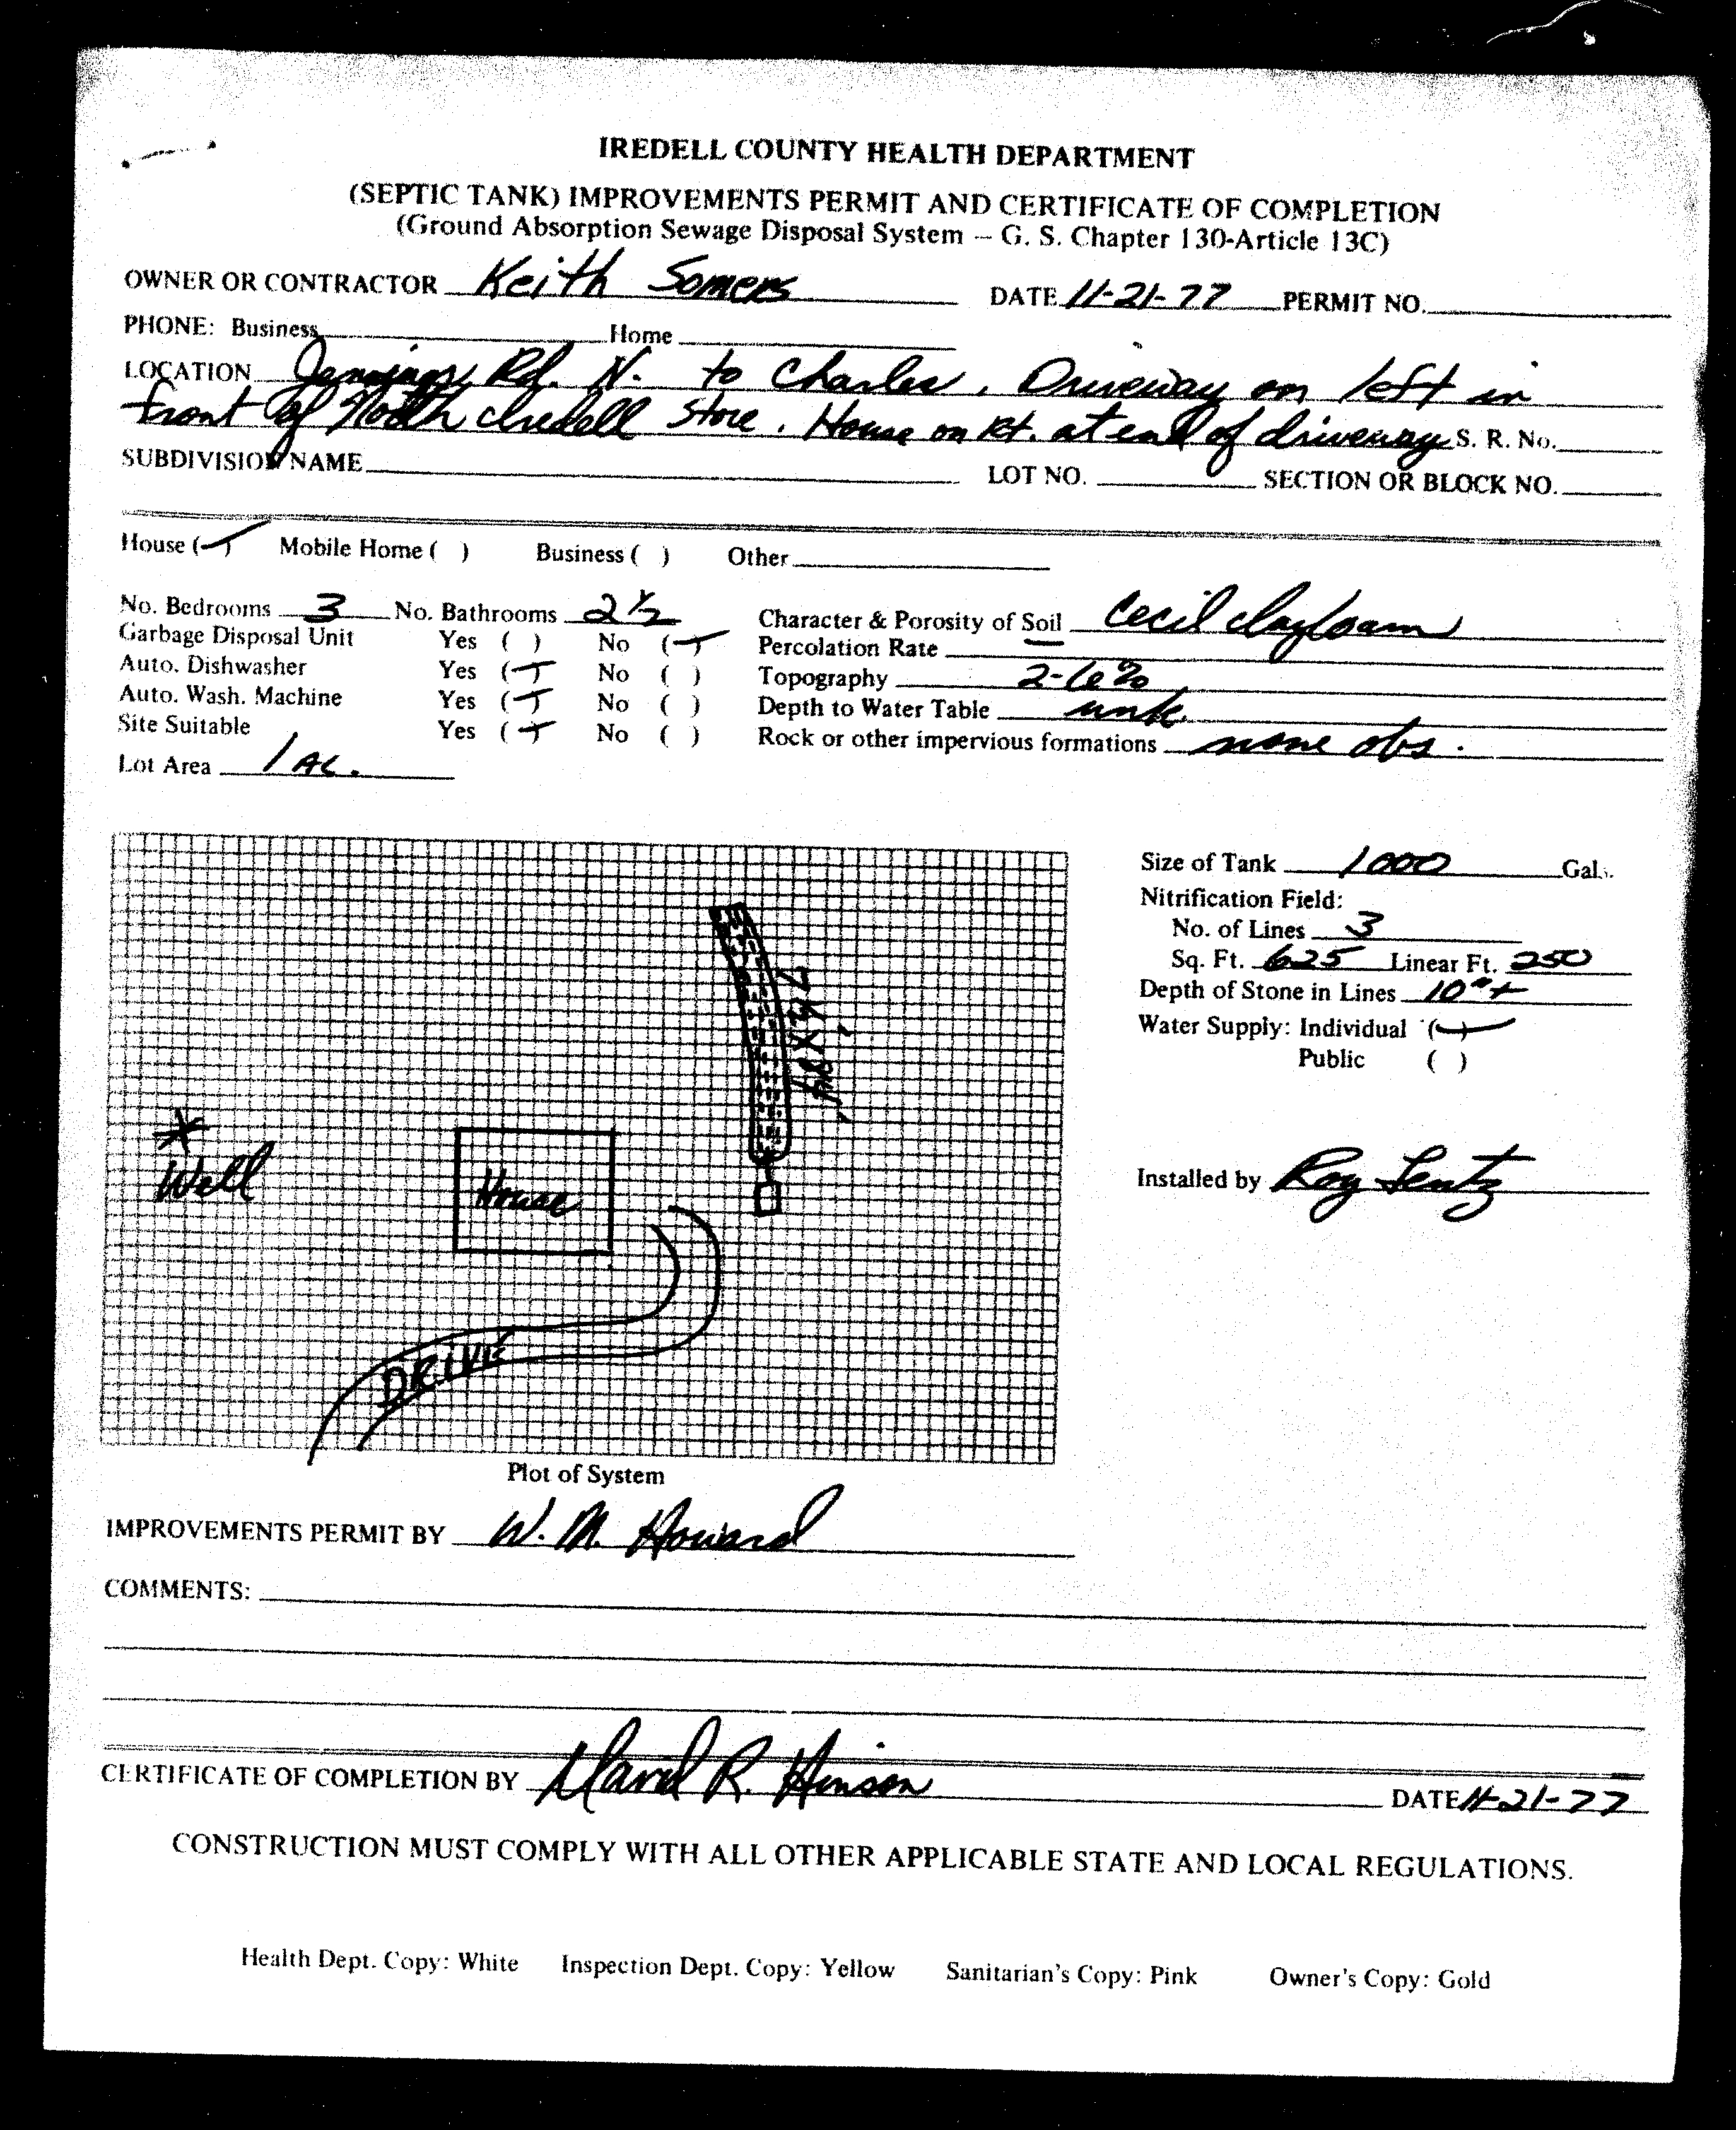 IREDELL COUNTY HEALTH DEPARTMENT
(SEPTIC TANK) IMPROVEMENTS PERMIT AND CERTIFICATE OF COMPLETION
(Ground Absorption Sewage Disposal System – G. S. Chapter 130-Article 13C)
OWNER OR CONTRACTOR Keith Somers DATE 11-21-77 PERMIT NO.
PHONE: Business Home
LOCATION Jennings Rd. N. to Charles, Driveway on left in
front of North Iredell Store. House on Rt. at end of driveway S. R. No.
SUBDIVISION NAME LOT NO. SECTION OR BLOCK NO.
House ( ) Mobile Home ( ) Business ( ) Other
No. Bedrooms 3 No. Bathrooms 2 ½ Character & Porosity of Soil Cecil clay loam
Garbage Disposal Unit Yes ( ) No ( ) Percolation Rate —
Auto. Dishwasher Yes ( ) No ( ) Topography 2-6%
Auto. Wash. Machine Yes ( ) No ( ) Depth to Water Table unk.
Site Suitable Yes ( ) No ( ) Rock or other impervious formations none obs.
Lot Area 1 AC.
Size of Tank 1000 Gals.
Nitrification Field:
No. of Lines 3
Sq. Ft. 625 Linear Ft. 250
Depth of Stone in Lines 10"+
Water Supply: Individual ( )
Public ( )
Well
House
DRIVE
Installed by Roy Lentz
Plot of System
IMPROVEMENTS PERMIT BY W. M. Howard
COMMENTS:
CERTIFICATE OF COMPLETION BY David R. Hinson DATE 11-21-77
CONSTRUCTION MUST COMPLY WITH ALL OTHER APPLICABLE STATE AND LOCAL REGULATIONS.
Health Dept. Copy: White Inspection Dept. Copy: Yellow Sanitarian's Copy: Pink Owner's Copy: Gold